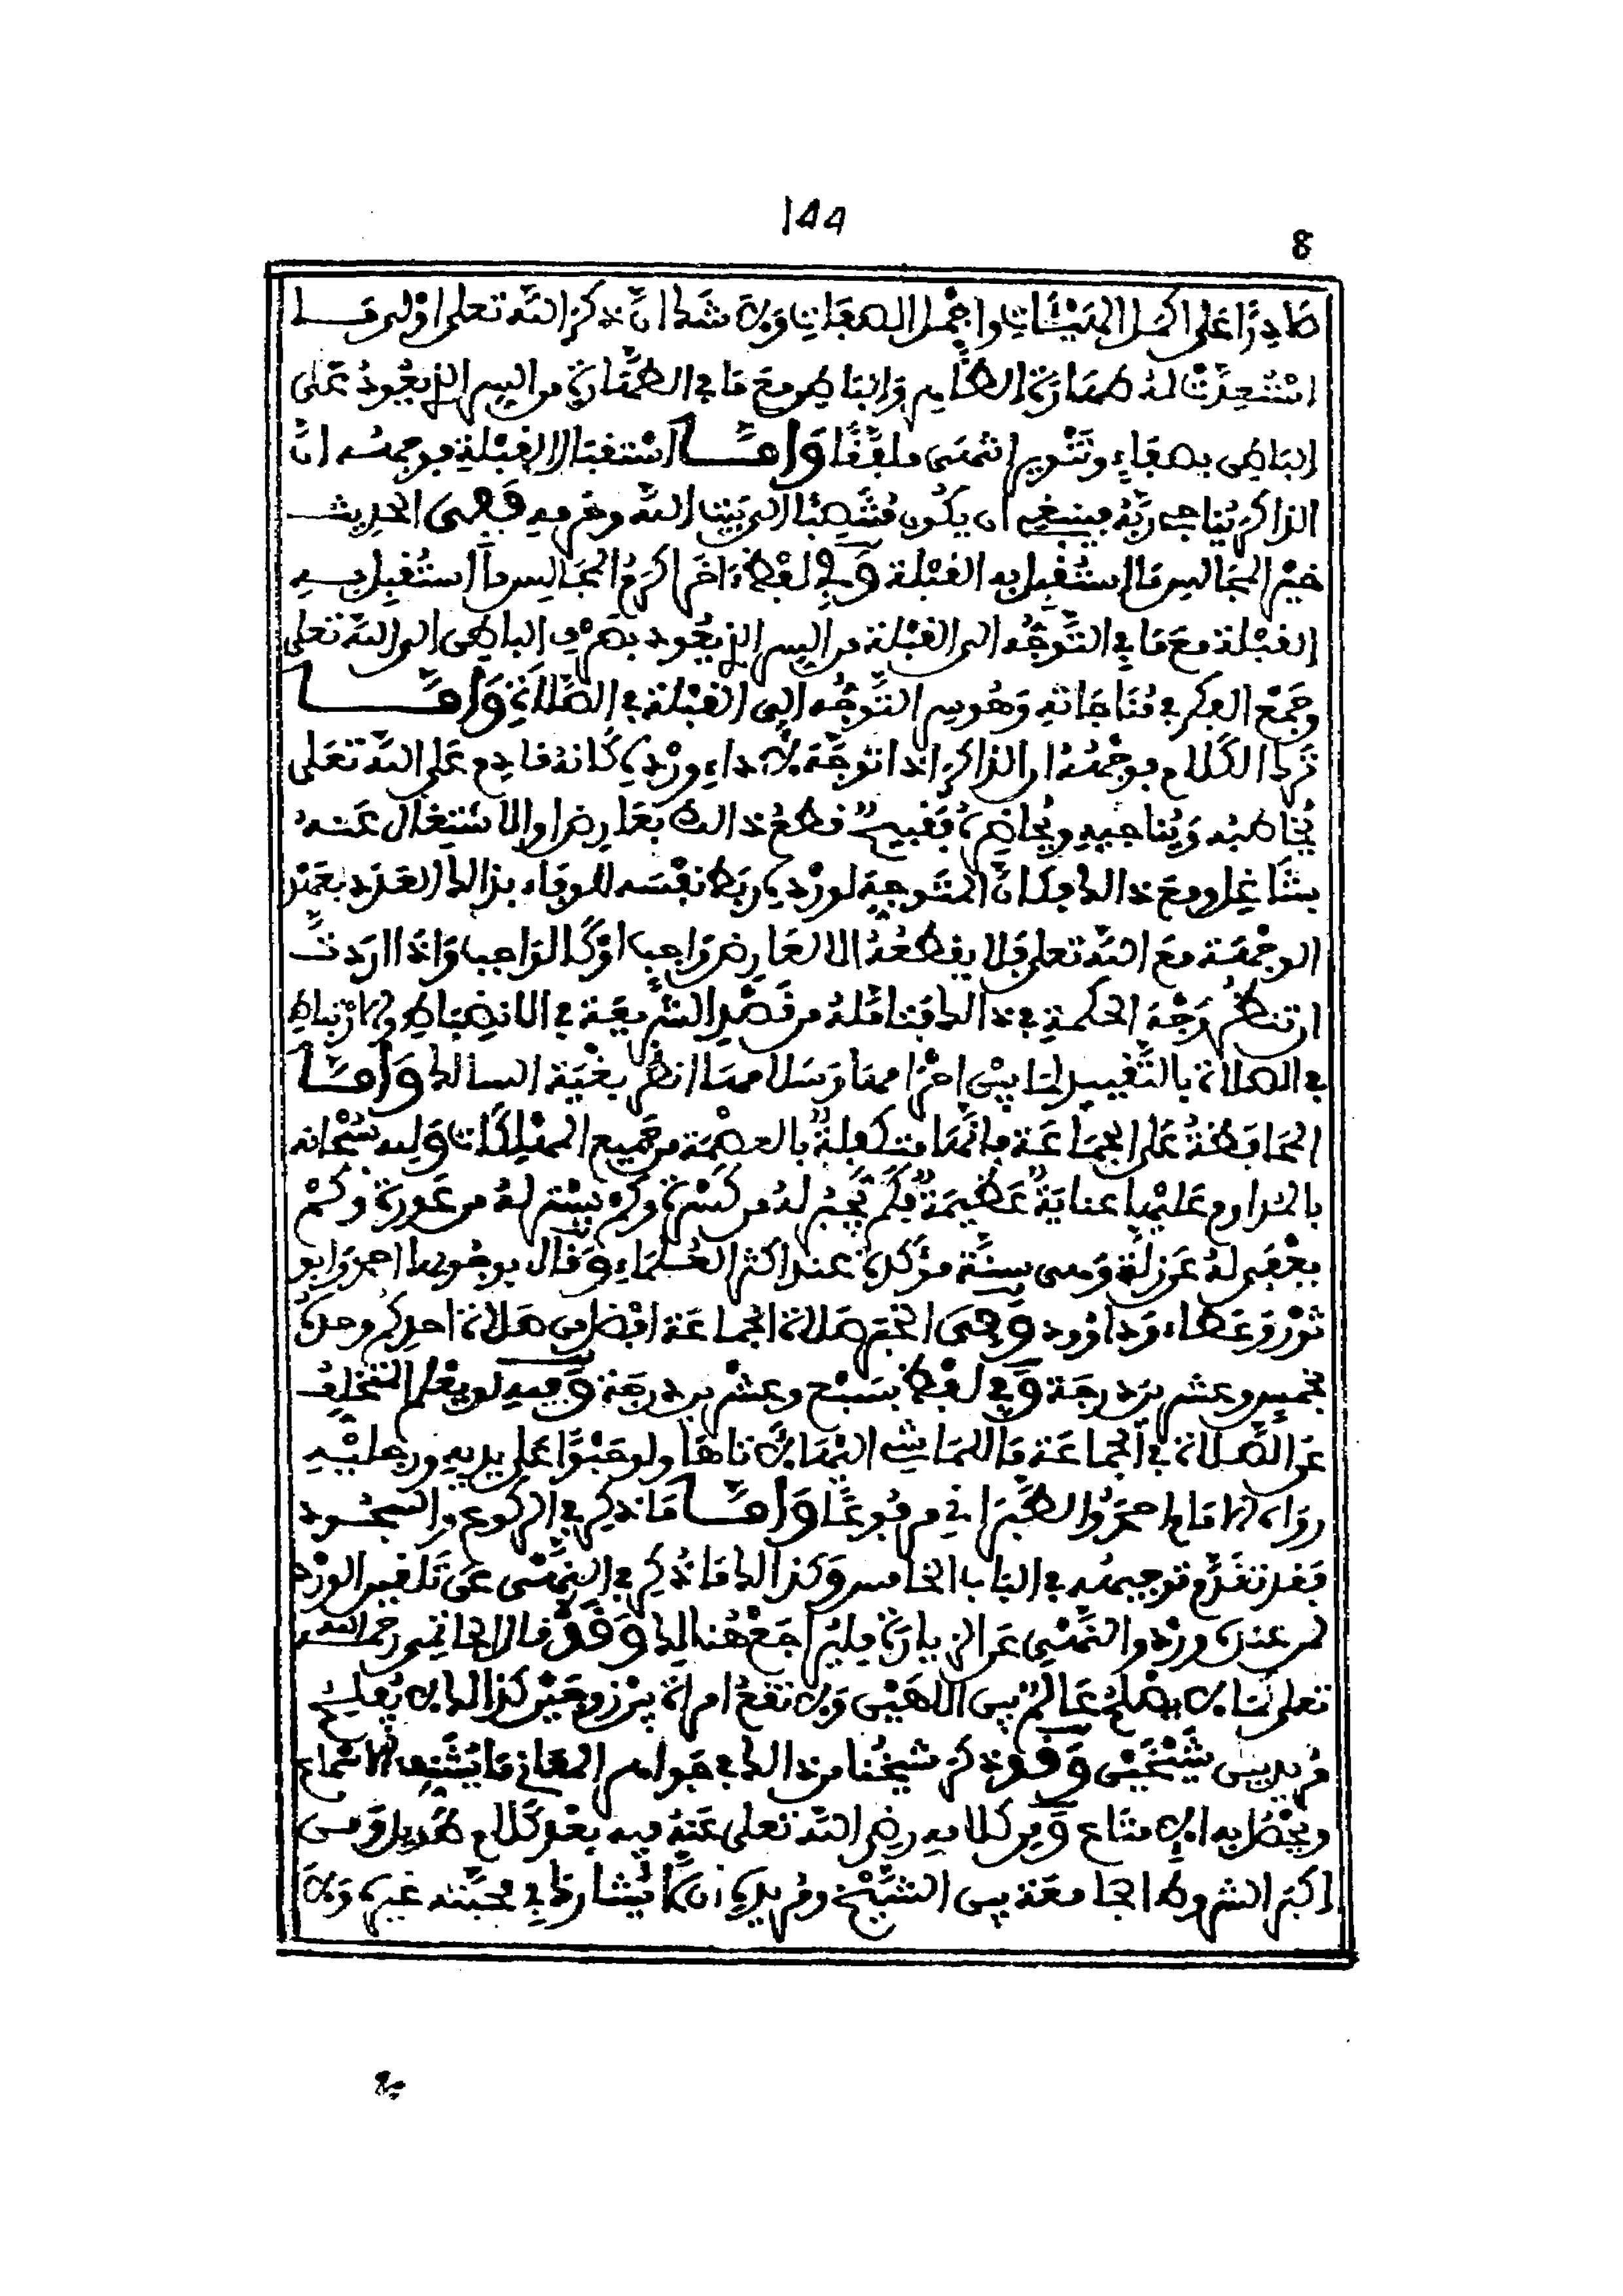 144
8
صَادِرًا عَلَى أكمل الهَيْئَاتِ وأجْمل الصفَاتِ وَلَا شَكَّ أنَّ ذكرَ اللَّه تعلى أوْلى مَا
اسْتُعِدَّتْ له طهَارَة الظَّاهِر وَالبَاطِن معَ مَا في الطهَّارَة من السر الذي يعُودُ عَلى
البَاطِن بصفَاءٍ وتَنْوير انتهى ملفَّقًا وَأمَّا اسْتقبَال القبْلةِ فوجهه أنَّ
الذاكرَ يُناجي ربَّهُ فينبغي أن يكُون مُتَّصِبًا الى بَيْت اللَّه وحَرمه فَفِى الحديث
خيْر المجَالس مَا اسْتُقْبِل به القبْلة وَفي لفْظٍ ءَاخَر أكرَمُ المجَالِس مَا اسْتُقْبِل به
القبْلة معَ مَا في التَّوجُّه الى القبْلة من السر الذي يعُود بصَرْف الباطن الى اللَّه تعلى
وجَمْع الفكر في مُنَاجَاته وَهُو سر التَّوجُّه إلى القبْلة في الصَّلاةِ وَأمَّا
تَرك الكَلام فوجْهُهُ ان الذاكرَ إذا توجَّهَ لأداء ورْدِه كأنه قادم عَلى اللَّه تعَلى
يُخاطبُه وَيُناجيهِ ويُحاضِرُه فقبيحٌ قطعُ ذالك بعَارِض او الاشتِغال عَنهُ
بشَاغِل ومعَ ذالك فكأنَّ المتَوجِهَ لورْدِه ربَط نفْسَه للوفَاء بذالك العَقد بعَقْد
الوجْهَة معَ اللَّه تعلى فلا يقْطعُهُ الا لعَارِض وَاجب أوْ كالوَاجب وَإذا أرَدتَّ
ان تنظُر وَجْهَ الحكمةِ في ذالك فتَأمَّلهُ من قَصْدِ الشَّريعَة في الانضِبَاط والارتباط
في الصلاة بالتَّقْييد لهَا بيْن إحْرَامهَا وَسَلامهَا انظر بغْيَة السالك وَأمَّا
المحَافظَةُ عَلى الجمَاعَة فإنَّهَا متكفِلةٌ بالعصْمَة من جَميع المهْلِكَات وَلله سُبْحانه
بالمُداوم عَليْهَا عنايَةٌ عَظيمَةٌ فكَمْ يَجْبُر لهُ من كَسْرَة وكمْ يسْتر لهُ من عَورة وكمْ
يغْفِر لهُ عَن زلَّة وَهى سنَّة مؤكدة عند أكثر العُلمَاء وَقال بوجُوبها احمدُ وَابو
ثوْر وَعَطاء وَداوُود وَفِى الخبَر صَلاة الجماعَة افضل من صَلاة احدِكم وحدَهُ
بخمسٍ وعشرينَ درجَة وَفي لفْظ بسَبْع وعشْرين درجَة وَفيه لو يعْلم المتخلفُ
عَن الصَّلاة في الجماعَة مَا للمَاشي اليْهَا لأتاهَا ولو حَبْوًا عَلى يديهِ ورجليْهِ
روَاه الامَام احمَدُ والطَّبَرَاني مرفُوعًا وَأمَّا مَا ذكِر في الركُوع والسجُود
فقد تقدَّم توجيهُه في البَاب الخامس وَكذالك مَا ذُكِر في النَّهْى عَن تَلقين الورْد
لمن عندَه ورْد والنَّهْي عَن الزيارَة فليُرَاجَعْ هُنالك وَقَدْ قال الحاتمي رحمه اللَّه
تعلى كمَا لا يصْلحُ عَالمٌ بين الاهَيْن وَلا تقعُ امرأة بين زوجَيْن كذالك لا يُفلح
مُريد بين شَيْخَيْن وَقَدْ ذكرَ شَيْخُنا من ذالك في جَواهر المعَاني مَا يُشَنِّفُ الاسْماعَ
ويحْصُل به الامتاع وَمِن كلامه رضي اللَّه تعلى عَنْهُ فيه بعْد كَلام طَويل وَمن
أكبَر الشروط الجامعَة بين الشَّيْخ ومُريدِه أن لا يُشارك في محبَّته غيرَه وَلا